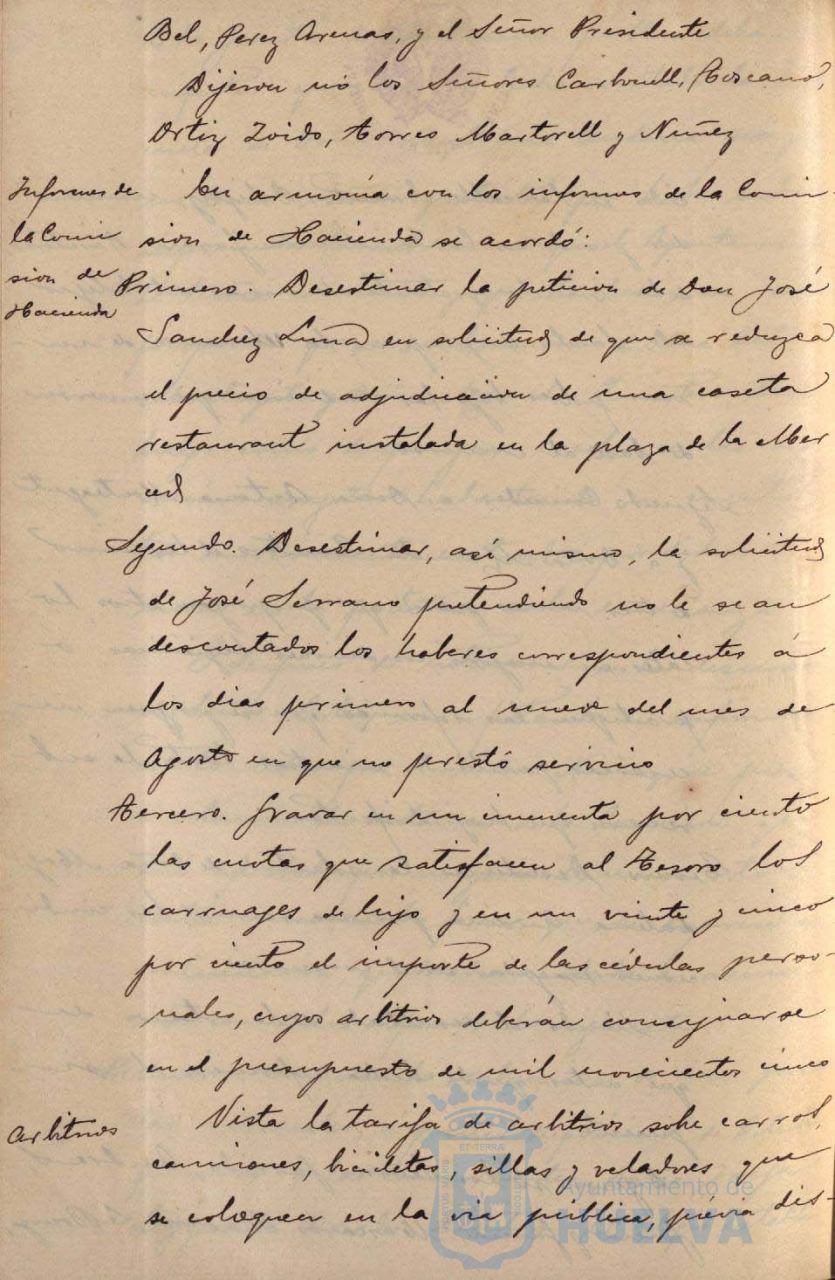 Bel, Perez Arenas, y el Señor Presidente
Dijeron nó los Señores Carbonell, Toscano,
Ortiz Zoido, Torres Martorell y Nuñez
Informes de
la Comi
sion de
Hacienda
En armonía con los informes de la Comi-
sion de Hacienda se acordó:
Primero. Desestimar la peticion de Don José
Sanchez Luna en solicitud de que se reduzca
el precio de adjudicacion de una caseta
restaurant instalada en la plaza de la Mer
ced
Segundo. Desestimar, así mismo, la solicitud
de José Serrano pretendiendo no le sean
descontados los haberes correspondientes á
los dias primero al nueve del mes de
Agosto en que no prestó servicio
Tercero. Gravar en un cincuenta por ciento
las cuotas que satisfacen al Tesoro los
carruages de lujo y en un veinte y cinco
por ciento el importe de las cédulas perso-
nales, cuyos arbitrios deberán consignarse
en el presupuesto de mil novecientos cinco
Arbitrios
Vista la tarifa de arbitrios sobre carros,
camiones, bicicletas, sillas y veladores que
se coloquen en la via publica, prévia dis-
Ayuntamiento de
HUELVA